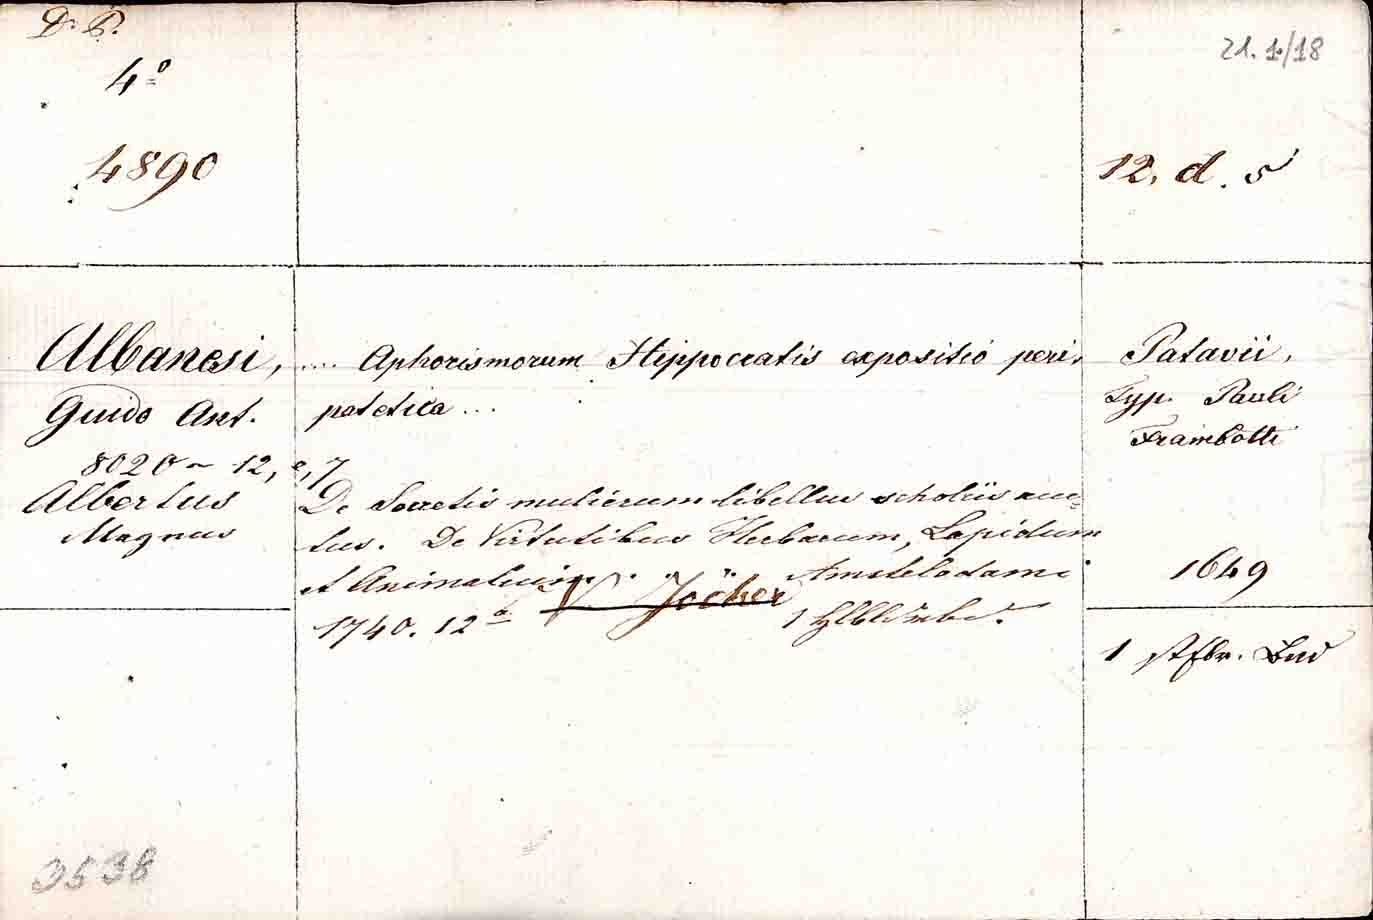 D. P.
21. 1./18
4º
4890
12. d. 5
Albanesi,
Guido Ant.
.... Aphorismorum Hippocratis expositio peri,
patetica ...
Patavii,
Typ. Pauli
Frambotti
1649
8020 - 12, e, 7
Albertus
Magnus
De Secretis mulierum libellus scholiis auc=
tus. De Virtutibus Herbarum, Lapidum
et Animalium. Amstelodami
1740. 12º V. Jöcher 1
1
3538